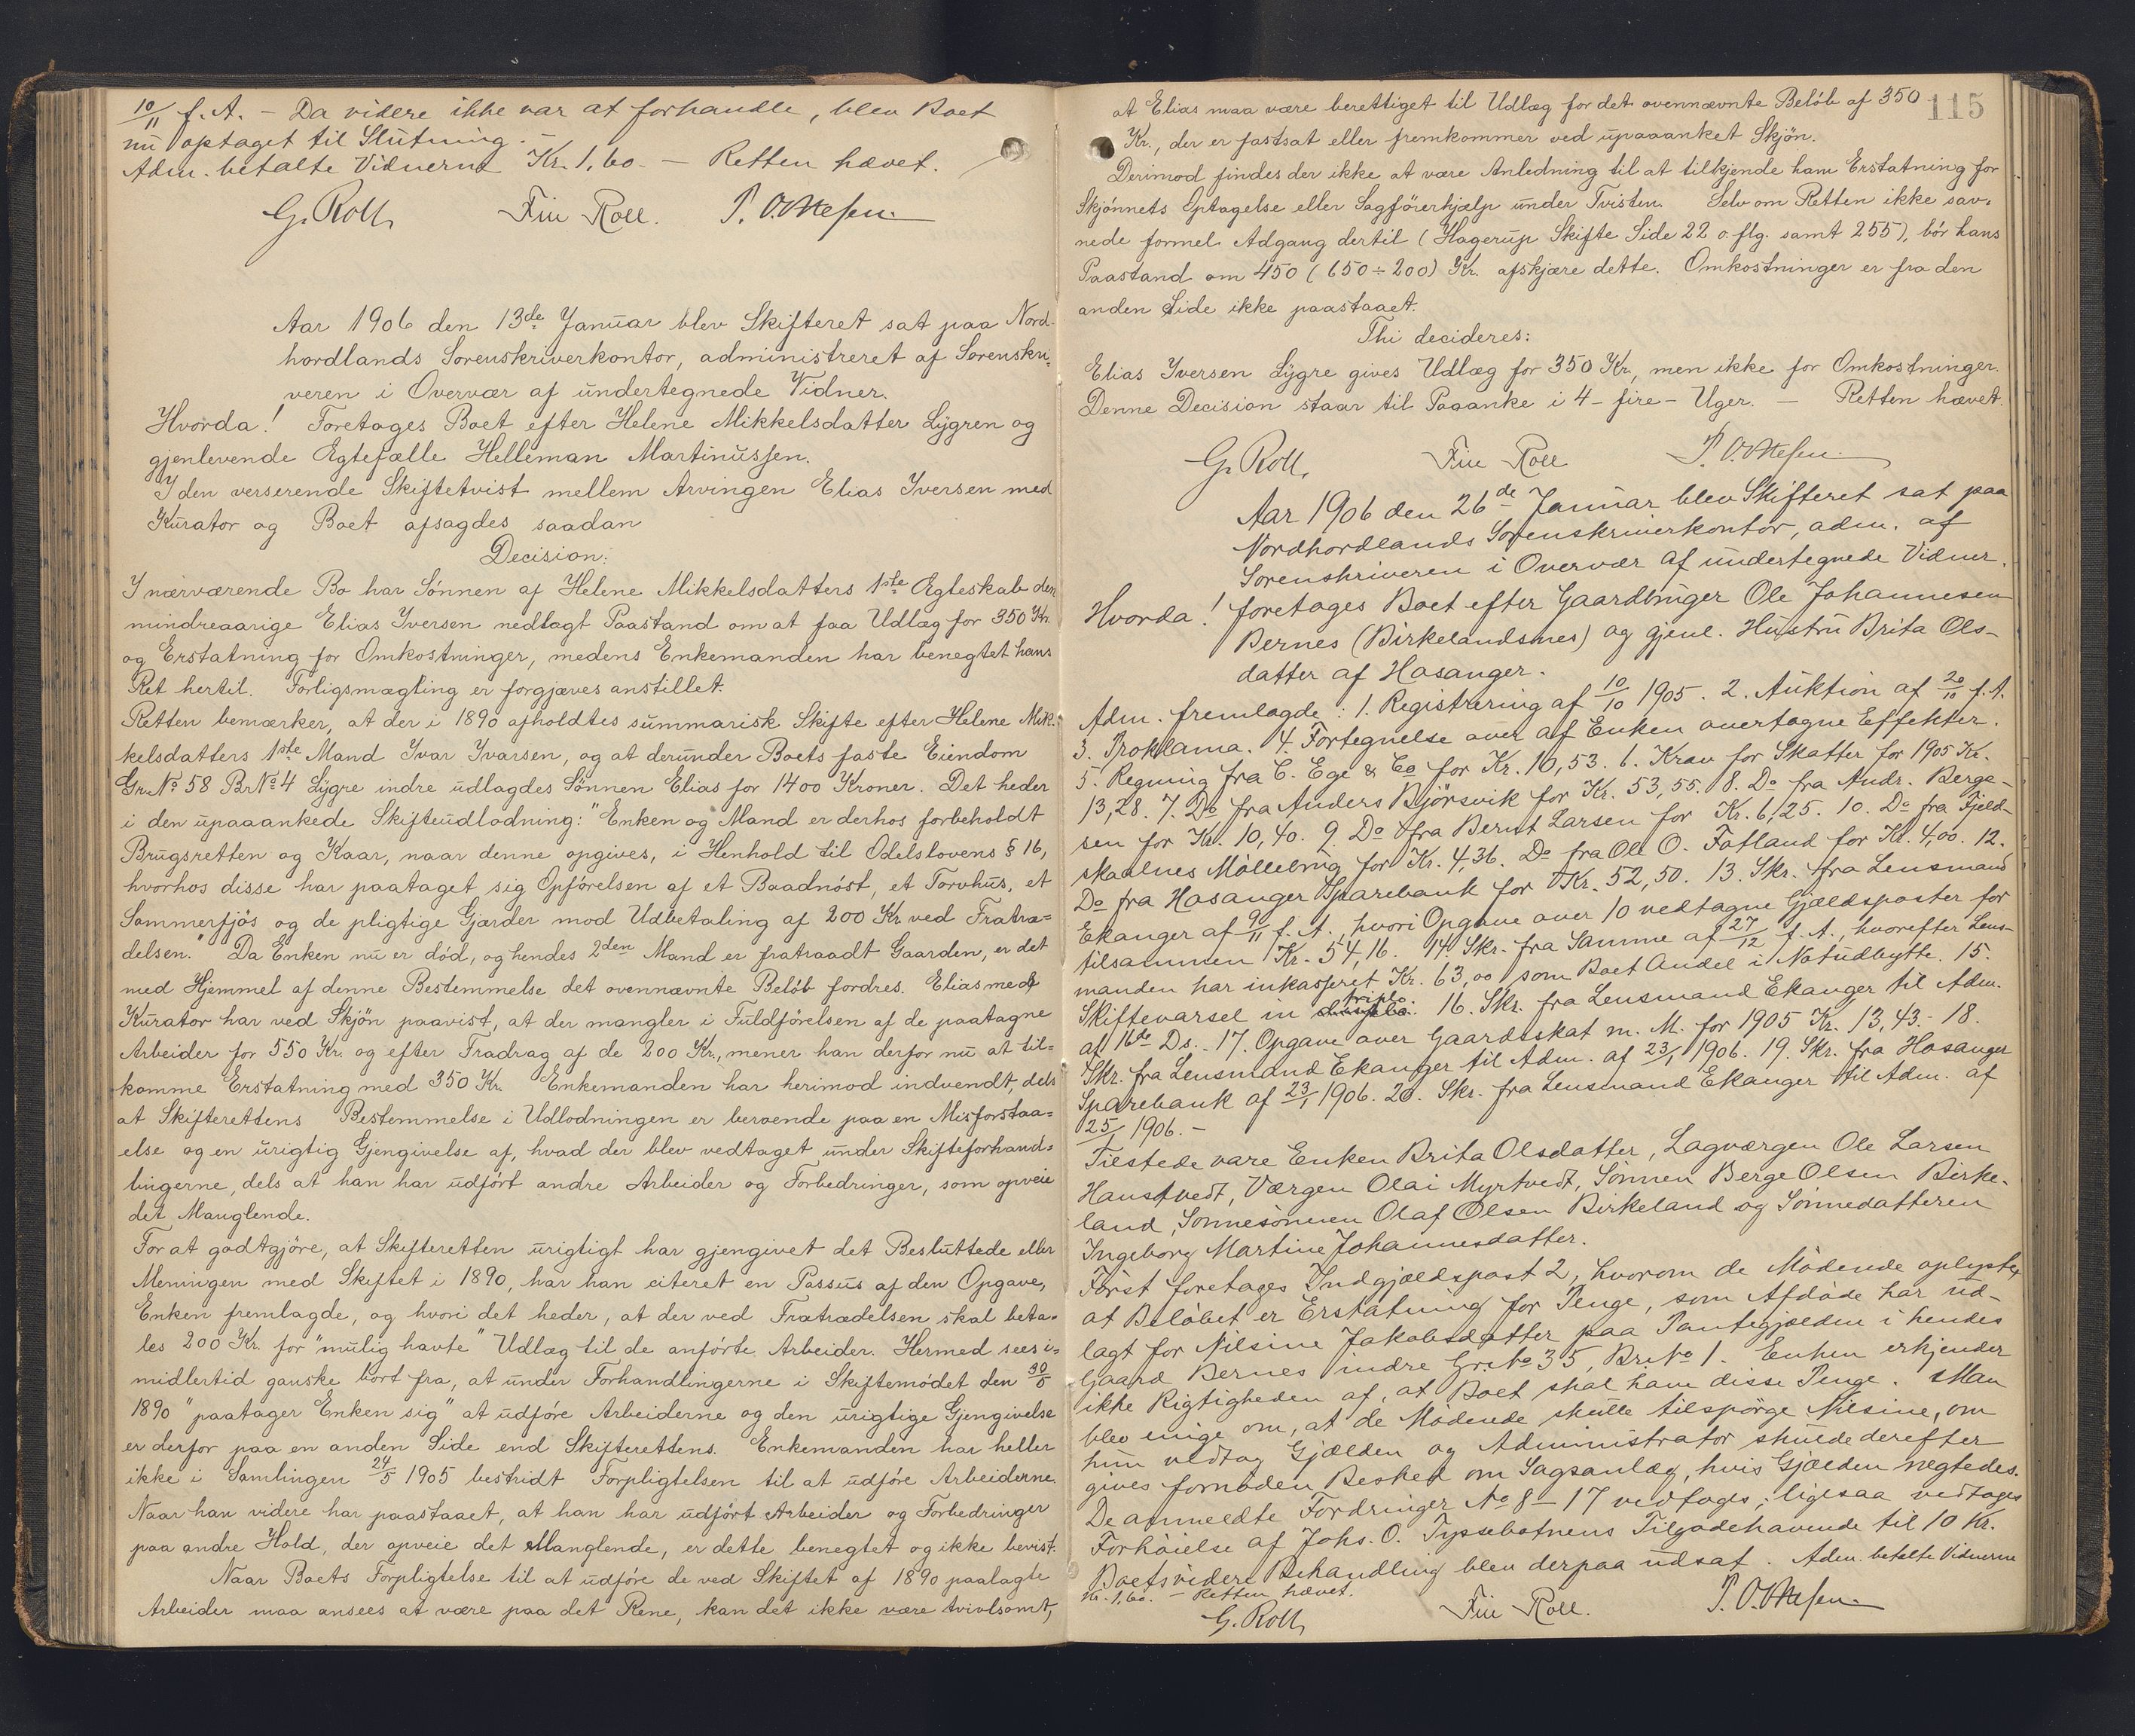 10/11 f. A. – Da videre ikke var at forhandle, blev Boet
nu optaget til Slutning. –
Adm. betalte Vidnerne Kr. 1,60 – Retten hævet.
G. Roll Finn Roll. P. Ottesen.
Aar 1906 den 13de Januar blev Skifteret sat paa Nord-
hordlands Sorenskriverkontor, administreret af Sorenskri-
veren i Overvær af undertegnede Vidner.
Hvorda! Foretages Boet efter Helene Mikkelsdatter Lygren og
gjenlevende Ægtefælle Helleman Martinussen.
I den verserende Skiftetvist mellem Arvingen Elias Iversen med
Kurator og Boet afsagdes saadan
Decision:
I nærværende Bo har Sønnen af Helene Mikkelsdatters 1ste Ægteskab den
mindreaarige Elias Iversen nedlagt Paastand om at faa Udlæg for 350 Kr.
og Erstatning for Omkostninger, medens Enkemanden har benegtet hans
Ret hertil. Forligsmægling er forgjæves anstillet.
Retten bemærker, at der i 1890 afholdtes summarisk Skifte efter Helene Mik-
kelsdatters 1ste Mand Ivar Ivarsen, og at derunder Boets faste Eiendom
Gr. No 58 Br No 4 Lygre indre udlagdes Sønnen Elias for 1400 Kroner. Det heder
i den upaaankede Skifteudlodning: "Enken og Mand er derhos forbeholdt
Brugsretten og Kaar, naar denne opgives, i Henhold til Odelslovens § 16,
hvorhos disse har paataget sig Opførelsen af et Baadnøst, et Torvhus, et
Sommerfjøs og de pligtige Gjærder mod Udbetaling af 200 Kr ved Fratræ-
delsen." Da Enken nu er død, og hendes 2den Mand er fratraadt Gaarden, er det
med Hjemmel af denne Bestemmelse det ovennævnte Beløb fordres. Elias med
Kurator har ved Skjøn paavist, at der mangler i Fuldførelsen af de paatagne
Arbeider for 550 Kr. og efter Fradrag af de 200 Kr., mener han derfor nu at til-
komme Erstatning med 350 Kr. Enkemanden har herimod indvendt, dels
at Skifterettens Bestemmelse i Udlodningen er beroende paa en Misforstaa-
else og en urigtig Gjengivelse af, hvad der blev vedtaget under Skifteforhand-
lingerne, dels at han har udført andre Arbeider og Forbedringer, som opveie
det Manglende.
For at godtgjøre, at Skifteretten urigtigt har gjengivet det Besluttede eller
Meningen med Skiftet i 1890, har han citeret en Passus af den Opgave,
Enken fremlagde, og hvori det heder, at der ved Fratrædelsen skal beta-
les 200 Kr. for "mulig havte" Udlæg til de anførte Arbeider. Hermed sees i-
midlertid ganske bort fra, at under Forhandlingerne i Skiftemødet den 30/5
1890 "paatager Enken sig" at udføre Arbeiderne og den urigtige Gjengivelse
er derfor paa en anden Side end Skifterettens. Enkemanden har heller
ikke i Samlingen 24/5 1905 bestridt Forpligtelsen til at udføre Arbeiderne.
Naar han videre har paastaaet, at han har udført Arbeider og Forbedringer
paa andre Hold, der opveie det Manglende, er dette benegtet og ikke bevist.
Naar Boets Forpligtelse til at udføre de ved Skiftet af 1890 paalagte
Arbeider maa ansees at være paa det Rene, kan det ikke være tvivlsomt,
115
at Elias maa være berettiget til Udlæg for det ovennævnte Beløb af 350
Kr., der er fastsat eller fremkommer ved upaaanket Skjøn.
Derimod findes der ikke at være Anledning til at tilkjende ham Erstatning for
Skjønnets Optagelse eller Sagførerhjælp under Tvisten. Selv om Retten ikke sav-
nede formel Adgang dertil (Hagerup Skifte Side 22 o. flg. samt 255), bør hans
Paastand om 450 (650 ÷ 200) Kr. afskjære dette. Omkostninger er fra den
anden Side ikke paastaaet.
Thi decideres:
Elias Iversen Lygre gives Udlæg for 350 Kr, men ikke for Omkostninger.
Denne Decision staar til Paaanke i 4 – fire – Uger. – Retten hævet.
G. Roll, Finn Roll P. Ottesen.
Aar 1906 den 26de Januar blev Skifteret sat paa
Nordhordlands Sorenskriverkontor, adm. af
Sorenskriveren i Overvær af undertegnede Vidner.
Hvorda! foretages Boet efter Gaardbruger Ole Johannesen
Bernes (Birkelandsnes) og gjenl. Hustru Brita Ols-
datter af Hosanger.
Adm. fremlagde: 1. Registrering af 10/10 1905. 2. Auktion af 20/10 f. A.
3. Proklama. 4. Fortegnelse over af Enken overtagne Effekter.
5. Regning fra C. Ege & Co for Kr. 10,53. 6. Krav for Skatter for 1905 Kr.
13,28. 7. Do fra Anders Bjørsvik for Kr. 53,55. 8. Do fra Andr. Berge-
sen for Kr. 10,40. 9. Do fra Bernt Larsen for Kr. 6,25. 10. Do fra Fjeld-
skaalnes Møllebrug for Kr. 4,36. Do fra Ole O. Fatland for Kr. 4,00. 12.
Do fra Hosanger Sparebank for Kr. 52,50. 13. Skr. fra Lensmand
Ekanger af 9/11 f. A., hvori Opgave over 10 vedtagne Gjældsposter for
tilsammen Kr. 54,16. 14. Skr. fra Samme af 27/12 f. A., hvorefter Lens-
manden har inkasseret Kr. 63,00, som Boet Andel i Notudbytte. 15.
Skiftevarsel in triplo. 16. Skr. fra Lensmand Ekanger til Adm.
af 16de Ds. 17. Opgave over Gaardskat m. M. for 1905 Kr. 13,43. – 18.
Skr. fra Lensmand Ekanger til Adm. af 23/1 1906. 19. Skr. fra Hosanger
Sparebank af 23/1 1906. 20. Skr. fra Lensmand Ekanger til Adm. af
25/1 1906. –
Tilstede vare Enken Brita Olsdatter, Lagværgen Ole Larsen
Haustvedt, Værgen Olai Myrtvedt, Sønnen Berge Olsen Birke-
land, Sønnesønnen Olaf Olsen Birkeland og Sønnedatteren
Ingeborg Martine Johannesdatter.
Først foretages Indgjældspost 2, hvorom de Mødende oplyste,
at Beløbet er Erstatning for Penge, som Afdøde har ud-
lagt for Nilsine Jakobsdatter paa Pantegjælden i hendes
Gaard Bernes indre Gr. No 35, Br. No 1. Enken erkjender
ikke Rigtigheden af, at Boet skal have disse Penge. Man
blev enige om, at de Mødende skulle tilspørge Nilsine, om
hun vedtog Gjælden og Administrator skulde derefter
gives fornøden Besked om Sagsanlæg, hvis Gjælden negtedes.
De anmeldte Fordringer No 8 – 17 vedtages; ligesaa vedtages
Forhøielse af Johs. O. Tyssebotnens Tilgodehavende til 10 Kr.
Boets videre Behandling blev derpaa udsat. Adm. betalte Vidnerne
Kr. 1,60. – Retten hævet.
G. Roll, Finn Roll. P. Ottesen.